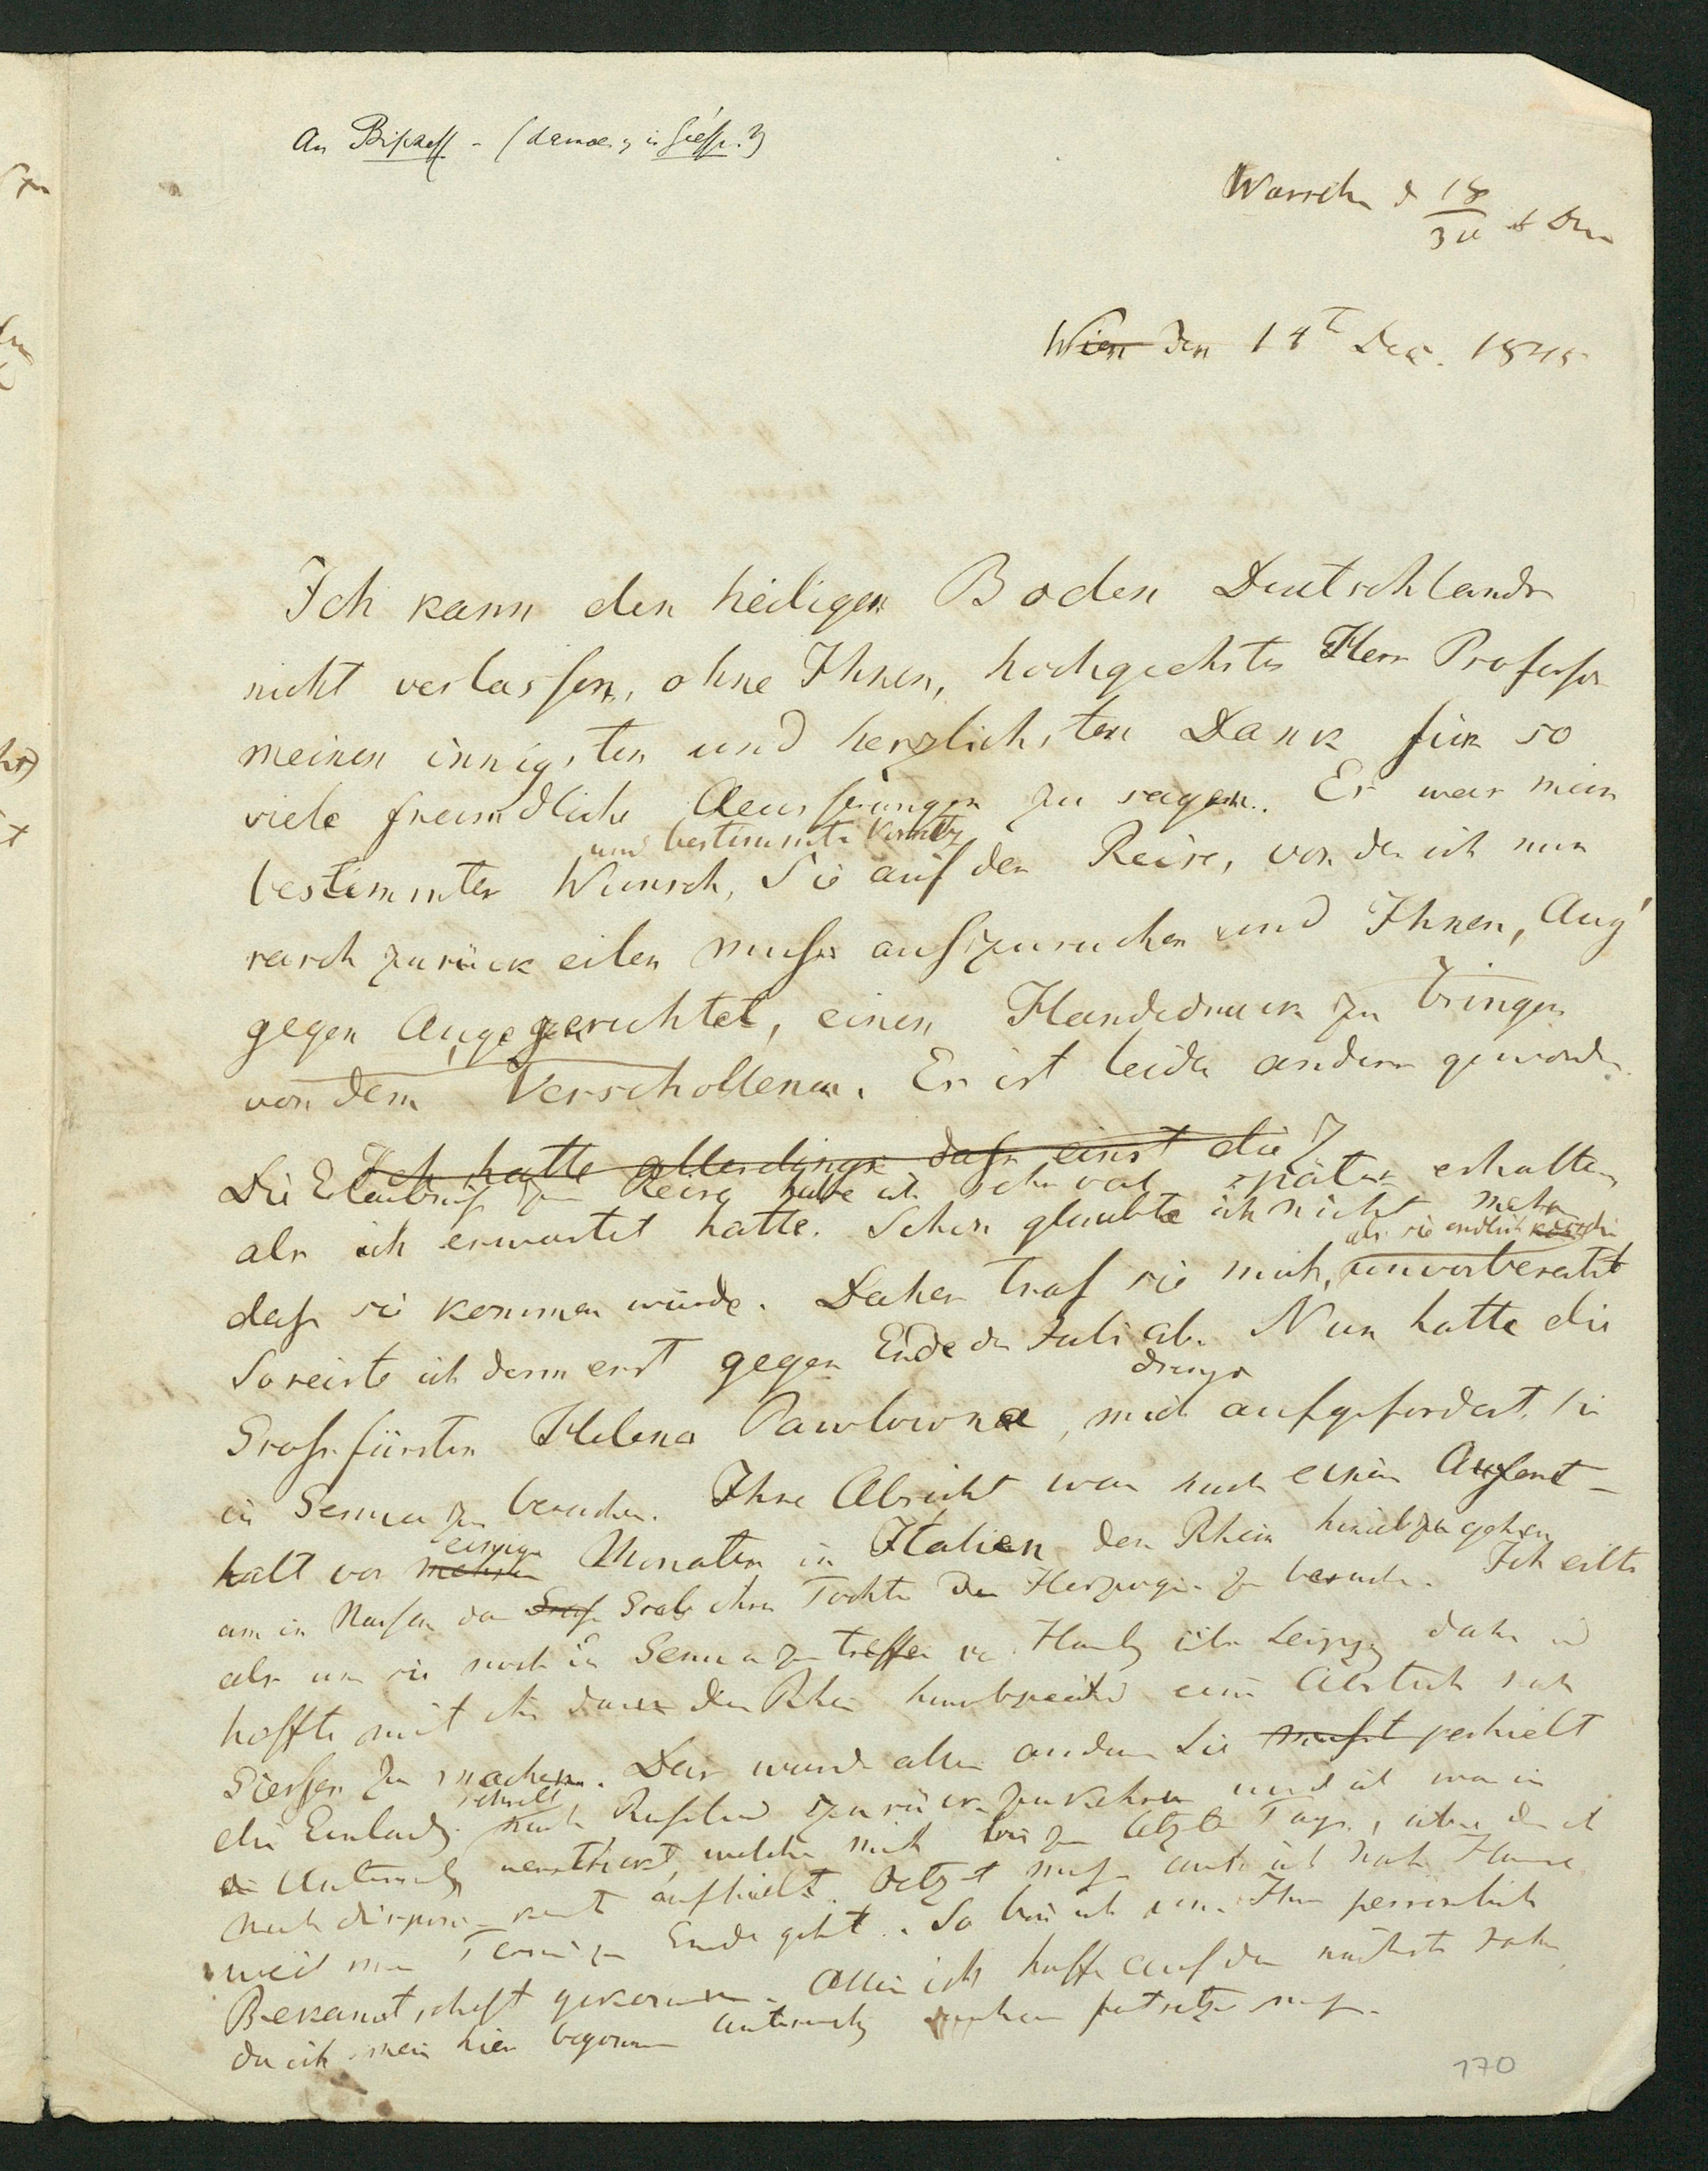 An Bischoff - (damals in Giessen?)
Warschau d 18/30 Dec
Wien den 14t Dec. 1845
Ich kann den heiligen Boden Deutschlands
nicht verlassen, ohne Ihnen, hochgeehrter Herr Professor
meinen innigsten und herzlichsten Dank für so
viele freundliche Aeusserungen zu sagen. Es war mein
und bestimmter Vorsatz
bestimmter Wunsch, Sie auf der Reise, von der ich nun
rasch zurück eilen muss aufzusuchen und Ihnen, Aug'
gegen Auge gerichtet, einen Händedruck zu bringen
von dem Verschollenen. Es ist leider anders geworden.
Ich hatte allerdings dass einst die
Die Erlaubniss zur Reise habe ich sehr viel später erhalten
als ich erwartet hatte. Schon glaubte ich nicht mehr
als sie endlich
dass sie kommen würde. Daher traf sie mich, unvorbereitet
So reiste ich denn erst gegen Ende des Juli ab. Nun hatte die
Grossfürstin Helena Pawlowna, mich aufgefordert, sie
in Genua zu besuchen. Ihre Absicht war nach einem Aufent-
einigen
halt von mehren Monaten in Italien den Rhein hinabzugehen
um in Nassau das Grab ihrer Tochter der Herzogin zu besuchen. Ich eilte
als um sie noch in Genua zu treffen von Hamburg über Leipzig daher und
hoffte mit ihr dann den Rhein hinabreisend einen Abstich nach
Giessen zu machen. Das wurde alles anders. Sie erhielt
schnell
die Einladung nach Russland zurückzukehren und ich war in
Untersuchungen verstrickt, welche mich bis zu letzten Tage, über den ich
noch disponiren konnte aufhielt. Jetzt muss auch ich nach Hause
weil mein Termin zu Ende geht. So bin ich um Ihre persönliche
Bekanntschaft gekommen. Allein ich hoffe auf das nächste Jahr,
da ich meine hier begonnenen Untersuchungen fortsetzen muss.
170